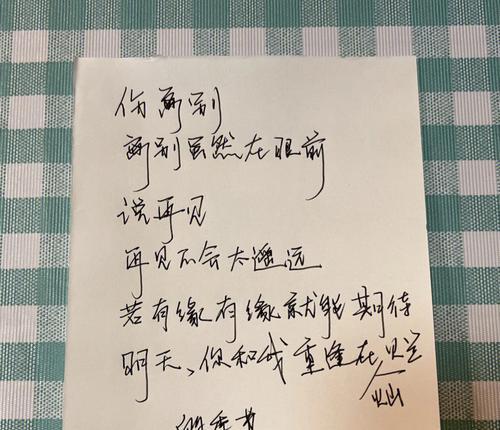 伤离别
离别虽然在眼前
说再见
再见不会太遥远
若有缘有缘就能期待
明天、你和我重逢在
灿